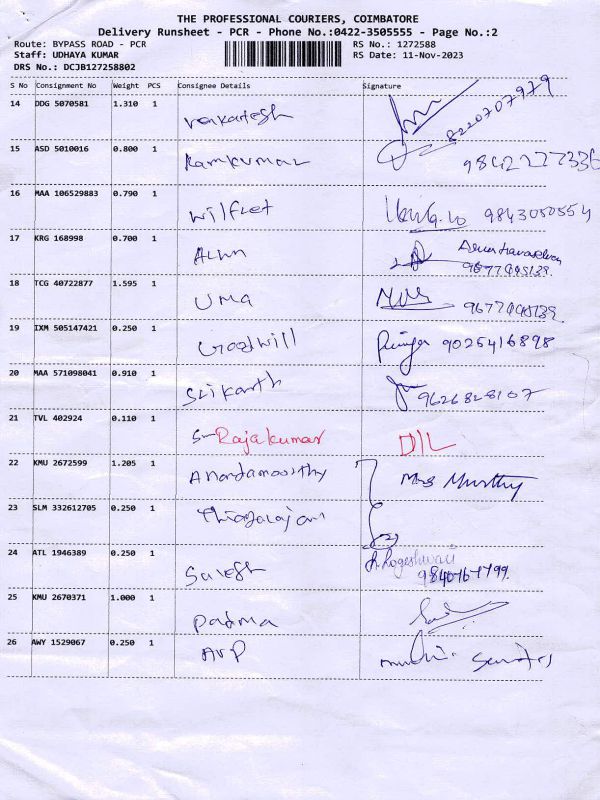 THE PROFESSIONAL COURIERS, COIMBATORE
Delivery Runsheet - PCR - Phone No.:0422-3505555 - Page No.:2
Route: BYPASS ROAD - PCR RS No.: 1272588
Staff: UDHAYA KUMAR RS Date: 11-Nov-2023
DRS No.: DCJB127258802
S No Consignment No Weight PCS Consignee Details Signature
14 DDG 5070581 1.310 1 Venkatesh 8220707979
15 ASD 5010016 0.800 1 Ramkumar 9842227336
16 MAA 106529883 0.790 1 Wilfret 9843050554
17 KRG 168998 0.700 1
18 TCG 40722877 1.595 1 Uma
19 IXM 505147421 0.250 1 Goodwill 9025416898
20 MAA 571098041 0.910 1 Srikanth 9626828107
21 TVL 402924 0.110 1 S-Rajakumar D/L
22 KMU 2672599 1.205 1 Anandamoorthy Mrs Murthy
23 SLM 332612705 0.250 1 Thiagarajan
24 ATL 1946389 0.250 1
25 KMU 2670371 1.000 1 Padma
26 AWY 1529067 0.250 1 AVP